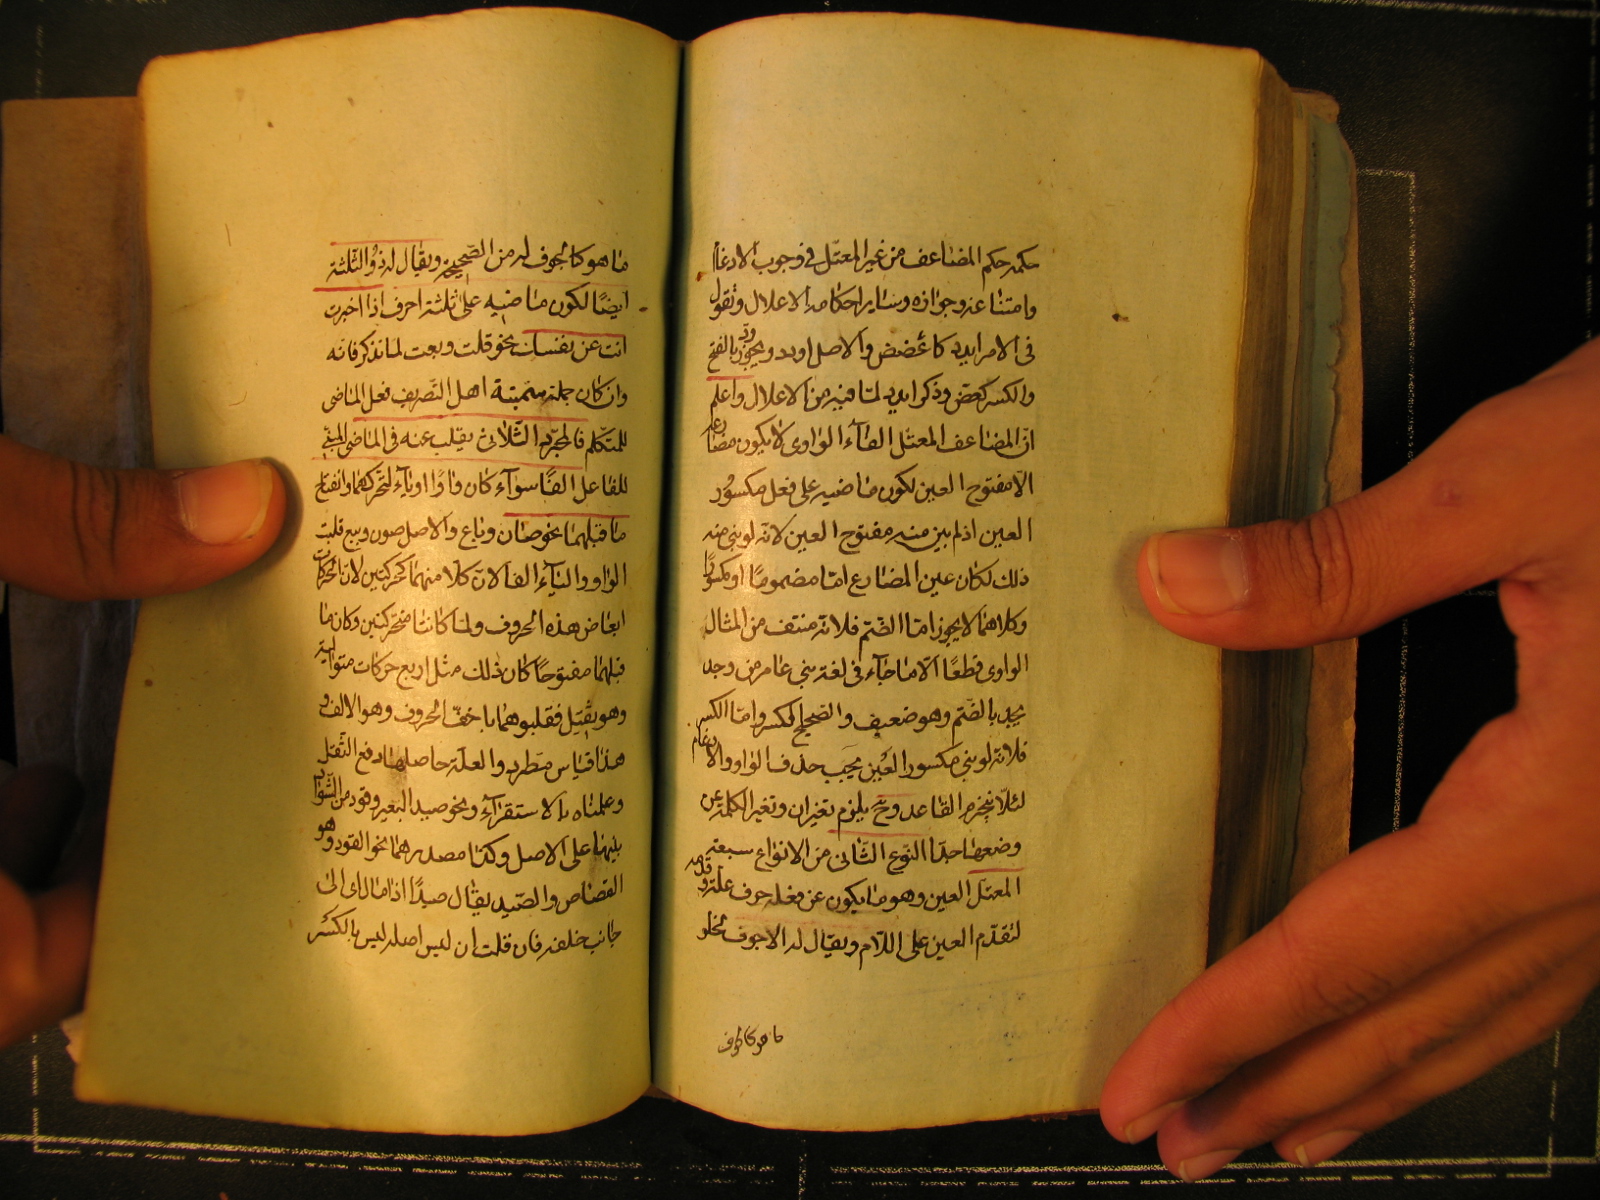 حكمه حكم المضاعف من غير المعتل في وجوب الادغام
وامتناعه وجوازه وسائر احكامه الاعلال وتقول
في الامر ايدد كاعضض والاصل اودد ويجوز ود بالفتح
والكسر كعض وذكر ايدد لما فيه من الاعلال واعلم
ان المضاعف المعتل الفاء الواوى لا يكون مضارعه
الا مفتوح العين لكون ماضيه على فعل مكسور
العين اذ لم يبن منه مفتوح العين لانه لو بني منه
ذلك لكان عين المضارع اما مضموما او مكسورا
وكلاهما لا يجوز اما الضم فلانه منتف من المثال
الواوى قطعا الا ما جاء في لغة بني عامر من وجد
يجد بالضم وهو ضعيف والصحيح الكسر واما الكسر
فلانه لو بني مكسور العين يجب حذف الواو والادغام
لئلا ينخرم القاعدة وح يلزم تغيران وتغير الكلمة عن
وضعها جدا النوع الثانى من الانواع سبعة
المعتل العين وهو ما يكون عين فعله حرف علة وقدمه
لتقدم العين على اللام ويقال له الاجوف لخلو
ما هو كالجوف
ما هو كالجوف له من الصحيح ويقال له ذو الثلثة
ايضا لكون ماضيه على ثلثة احرف اذا اخبرت
انت عن نفسك نحو قلت وبعت لما نذكر فانه
وان كان جملة سميته اهل التصريف فعل الماضى
للمتكلم فالمجرد الثلاثى يقلب عينه في الماضى المبنى
للفاعل الفا سواء كان واوا او ياء لتحركهما وانفتاح
ما قبلهما نحو صان وباع والاصل صون وبيع قلبت
الواو والياء الفا لان كلا منهما كحركتين لان الحركات
ابعاض هذه الحروف ولما كانتا متحركتين وكان ما
قبلهما مفتوحا كان ذلك مثل اربع حركات متوالية
وهو ثقيل فقلبوهما باخف الحروف وهو الالف و
هذا قياس مطرد والعلة حاصلها دفع الثقل
وعلمناه بالاستقراء ونحو صيد البعير وقود من الشواذ
بنيها على الاصل وكذا مصدرهما نحو القود وهو
القصاص والصيد يقال صيدا اذا مال الى
جانب خلفه فان قلت ان ليس اصله ليس بالكسر